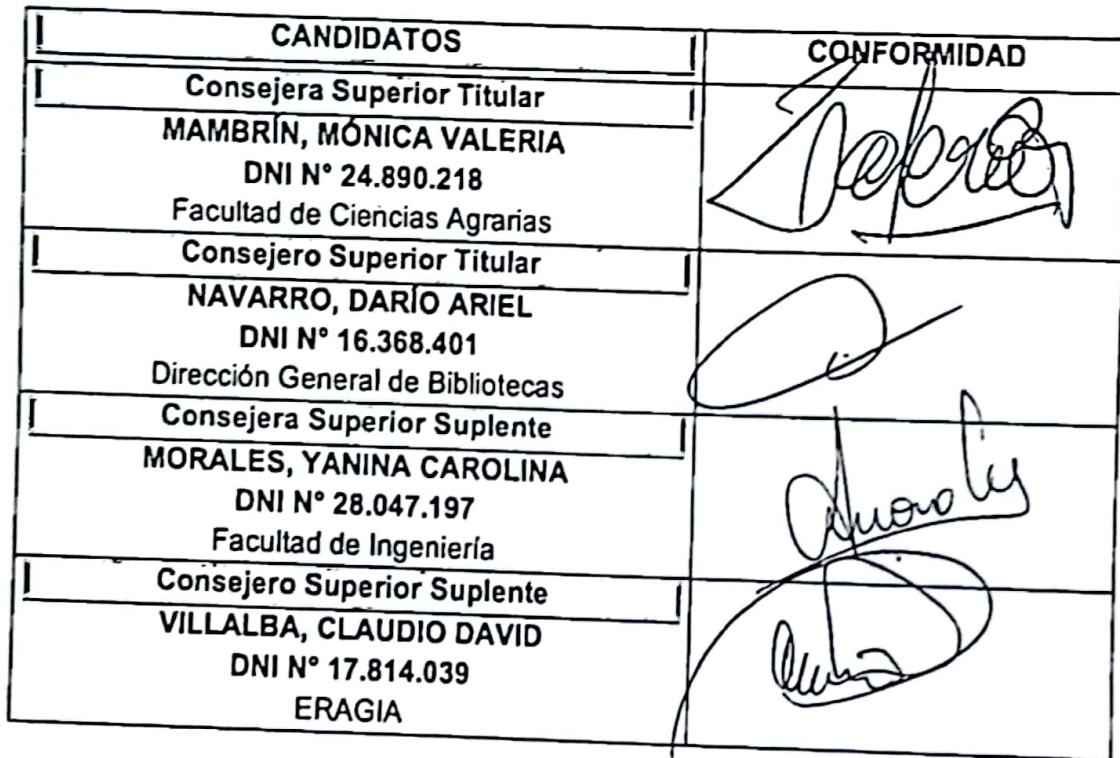 CANDIDATOS
CONFORMIDAD
Consejera Superior Titular
MAMBRÍN, MÓNICA VALERIA
DNI N° 24.890.218
Facultad de Ciencias Agrarias
Consejero Superior Titular
NAVARRO, DARÍO ARIEL
DNI N° 16.368.401
Dirección General de Bibliotecas
Consejera Superior Suplente
MORALES, YANINA CAROLINA
DNI N° 28.047.197
Facultad de Ingeniería
Consejero Superior Suplente
VILLALBA, CLAUDIO DAVID
DNI N° 17.814.039
ERAGIA